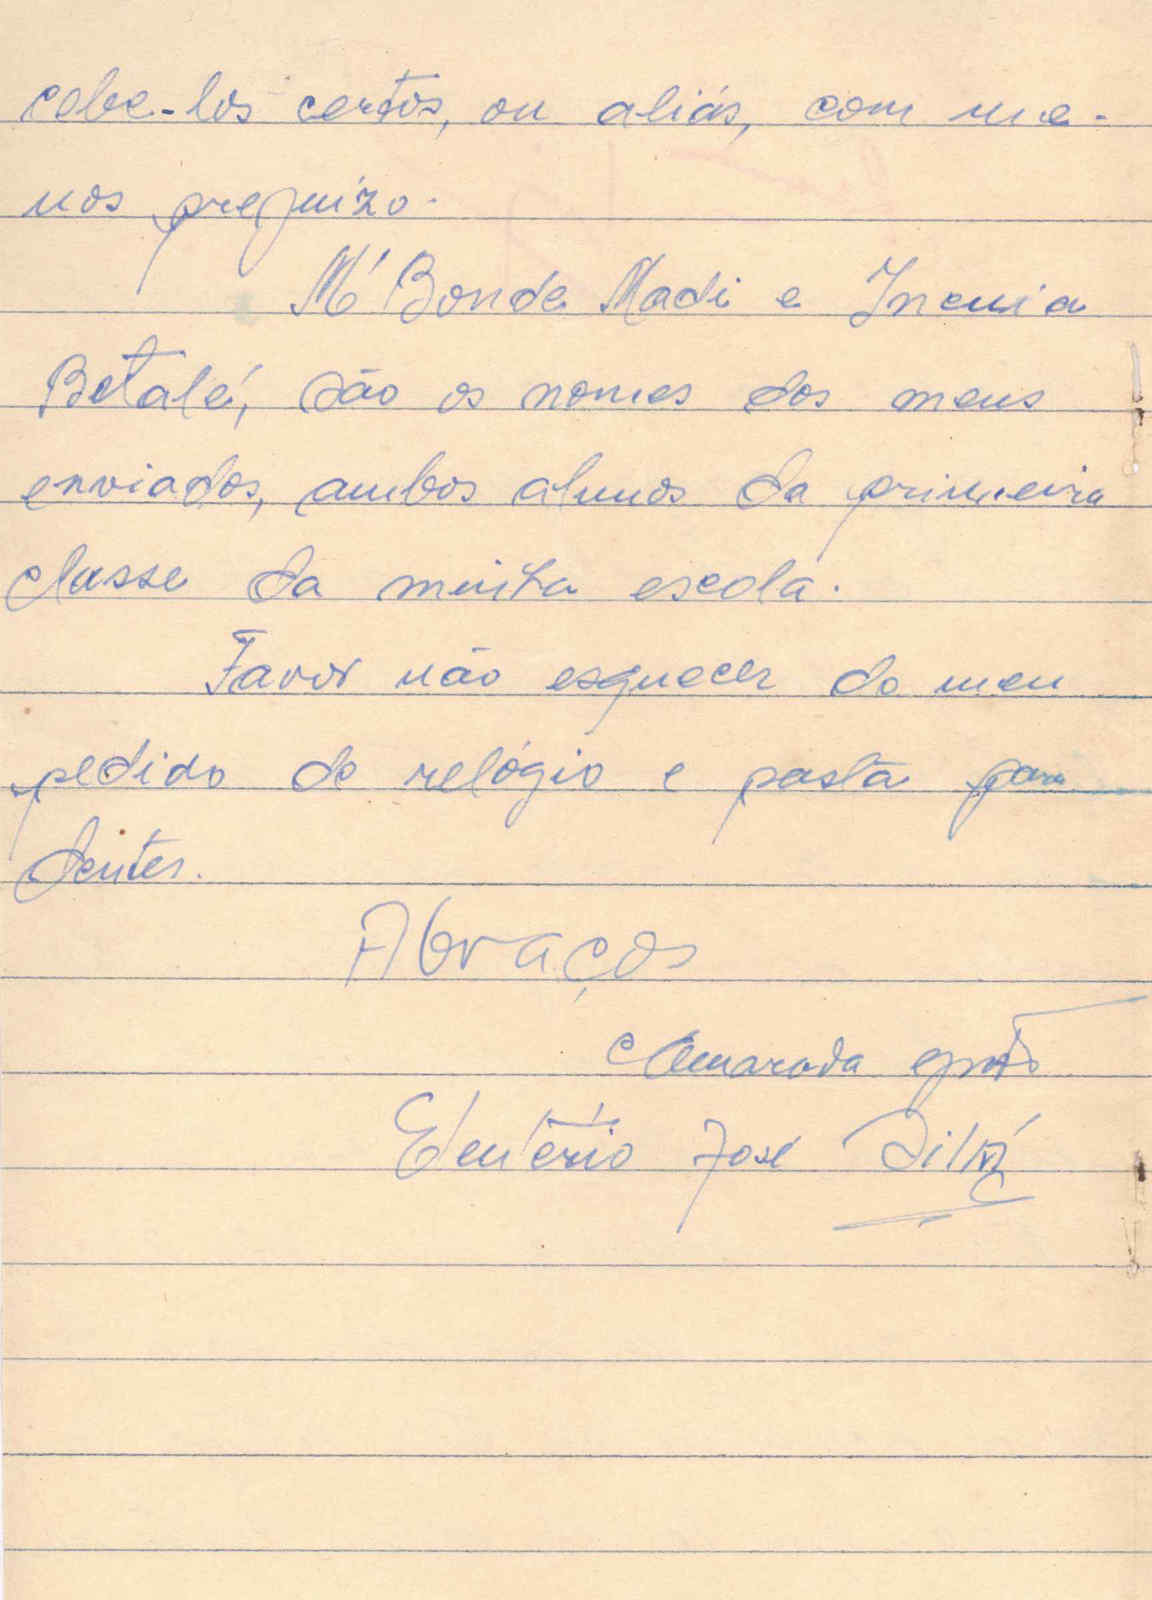 cebe-los certos, ou aliás, com me-
nos prejuízo.
M'Bonde Madi e Incuia
Betalé, são os nomes dos meus
enviados, ambos alunos da primeira
classe da minha escola.
Favor não esquecer do meu
pedido do relógio e pasta para
dentes.
Abraços
Camarada grato
Eleutério José Silva